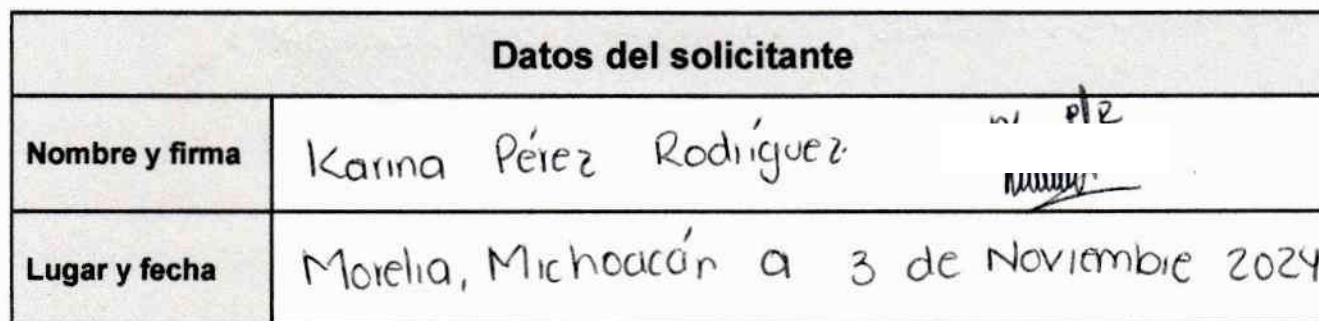 Datos del solicitante
Nombre y firma Karina Pérez Rodríguez
Lugar y fecha Morelia, Michoacán a 3 de Noviembre 2024